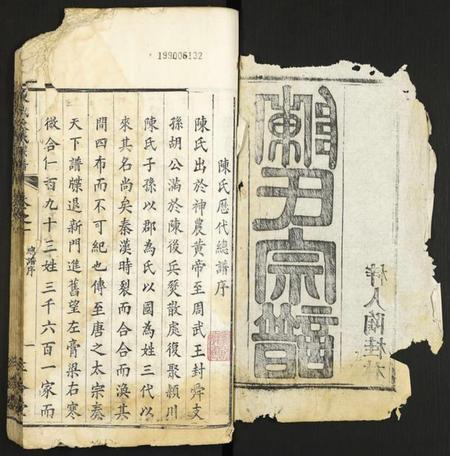 陳氏宗譜
梓人陶桂
199006132
陳氏歷代總譜序
陳氏出於神農黃帝至周武王封舜支
孫胡公滿於陳後兵燹散處復聚潁川
陳氏子孫以郡為氏以國為姓三代以
來其名尚矣秦漢時裂而合合而渙其
間四布而不可紀也傳至唐之太宗奏
天下譜牒退新門進舊望左膏粱右寒
微合仁百九十三姓三千六百一家而
總譜序
一